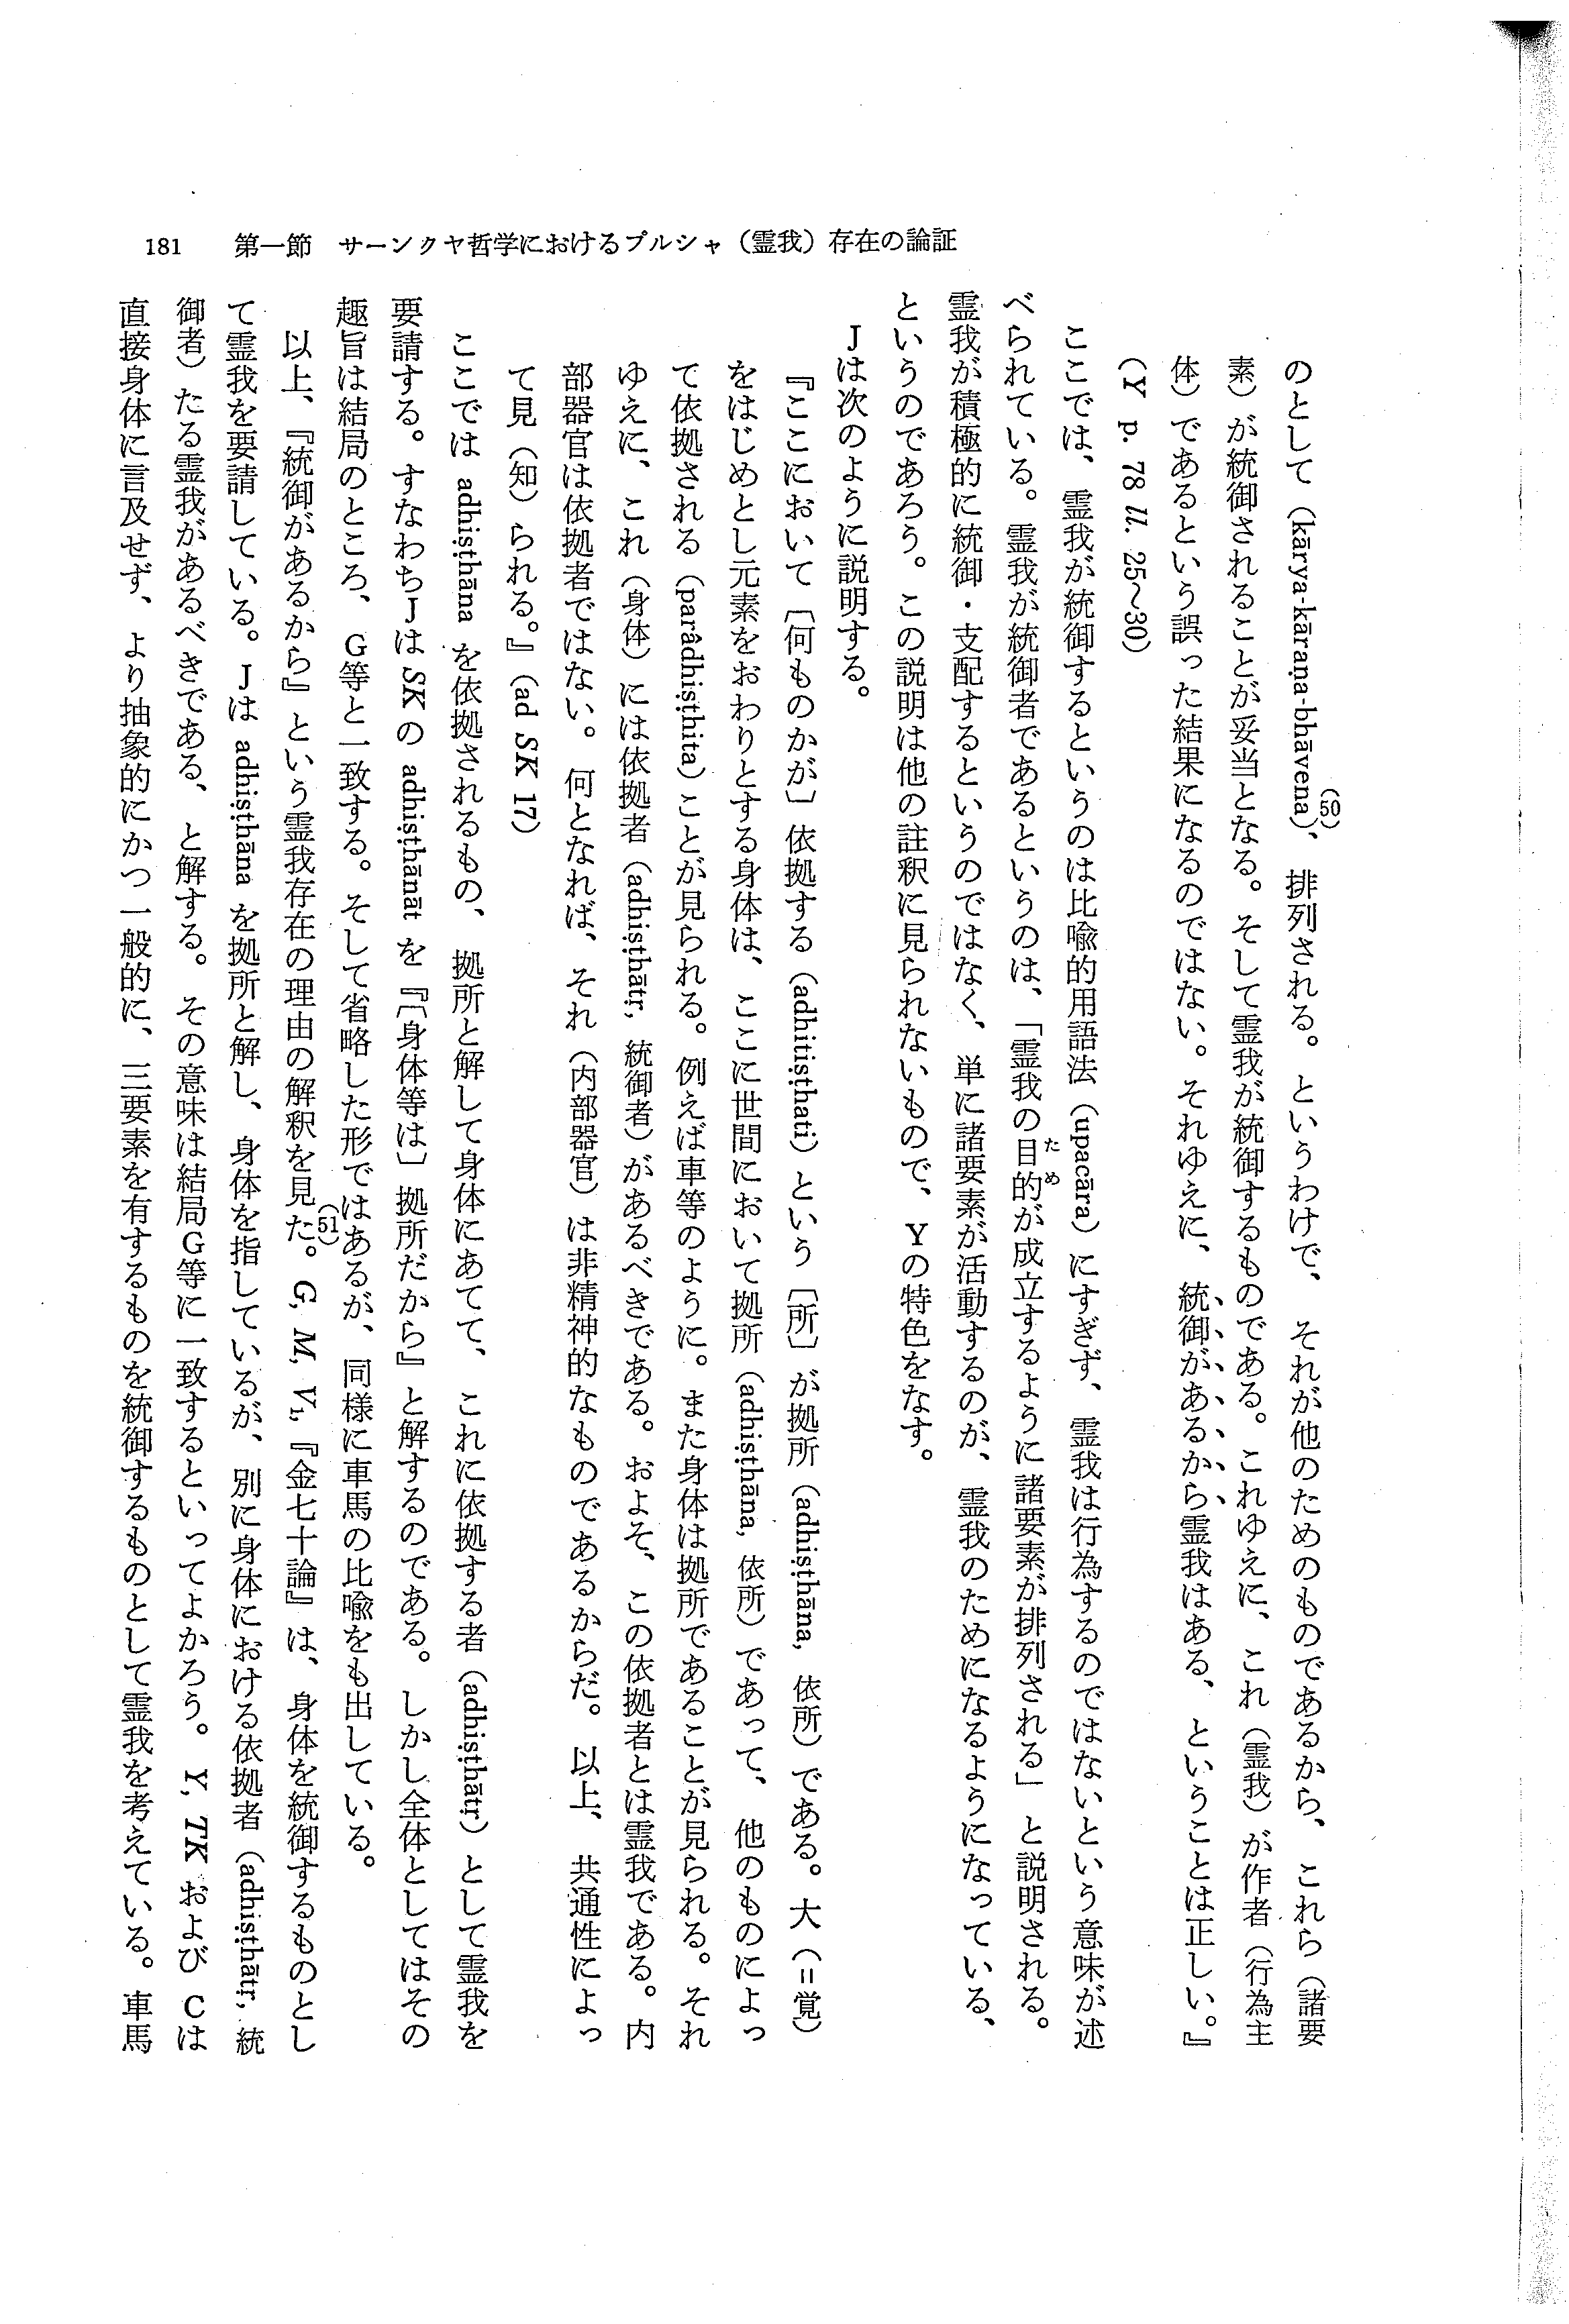 181　第一節　サーンクヤ哲学におけるプルシャ（霊我）存在の論証
のとして（kārya-kāraṇa-bhāvena）、(50)排列される。というわけで、それが他のためのものであるから、これら（諸要
素）が統御されることが妥当となる。そして霊我が統御するものである。これゆえに、これ（霊我）が作者（行為主
体）であるという誤った結果になるのではない。それゆえに、統御があるから霊我はある、ということは正しい。』
（Y p. 78 ll. 25～30）
ここでは、霊我が統御するというのは比喩的用語法（upacāra）にすぎず、霊我は行為するのではないという意味が述
べられている。霊我が統御者であるというのは、「霊我の目的(ため)が成立するように諸要素が排列される」と説明される。
霊我が積極的に統御・支配するというのではなく、単に諸要素が活動するのが、霊我のためになるようになっている、
というのであろう。この説明は他の註釈に見られないもので、Yの特色をなす。
Jは次のように説明する。
『ここにおいて〔何ものかが〕依拠する（adhitiṣṭhati）という〔所〕が拠所（adhiṣṭhāna, 依所）である。大（＝覚）
をはじめとし元素をおわりとする身体は、ここに世間において拠所（adhiṣṭhāna, 依所）であって、他のものによっ
て依拠される（parâdhiṣṭhita）ことが見られる。例えば車等のように。また身体は拠所であることが見られる。それ
ゆえに、これ（身体）には依拠者（adhiṣṭhātṛ, 統御者）があるべきである。およそ、この依拠者とは霊我である。内
部器官は依拠者ではない。何となれば、それ（内部器官）は非精神的なものであるからだ。以上、共通性によっ
て見（知）られる。』（ad SK 17）
ここでは adhiṣṭhāna を依拠されるもの、拠所と解して身体にあてて、これに依拠する者（adhiṣṭhātṛ）として霊我を
要請する。すなわちJは SK の adhiṣṭhānāt を『〔身体等は〕拠所だから』と解するのである。しかし全体としてはその
趣旨は結局のところ、G等と一致する。そして省略した形ではあるが、同様に車馬の比喩をも出している。
以上、『統御があるから』という霊我存在の理由の解釈を見た。(51) G, M, V₁,『金七十論』は、身体を統御するものとし
て霊我を要請している。Jは adhiṣṭhāna を拠所と解し、身体を指しているが、別に身体における依拠者（adhiṣṭhātṛ, 統
御者）たる霊我があるべきである、と解する。その意味は結局G等に一致するといってよかろう。Y, TK および C は
直接身体に言及せず、より抽象的にかつ一般的に、三要素を有するものを統御するものとして霊我を考えている。車馬